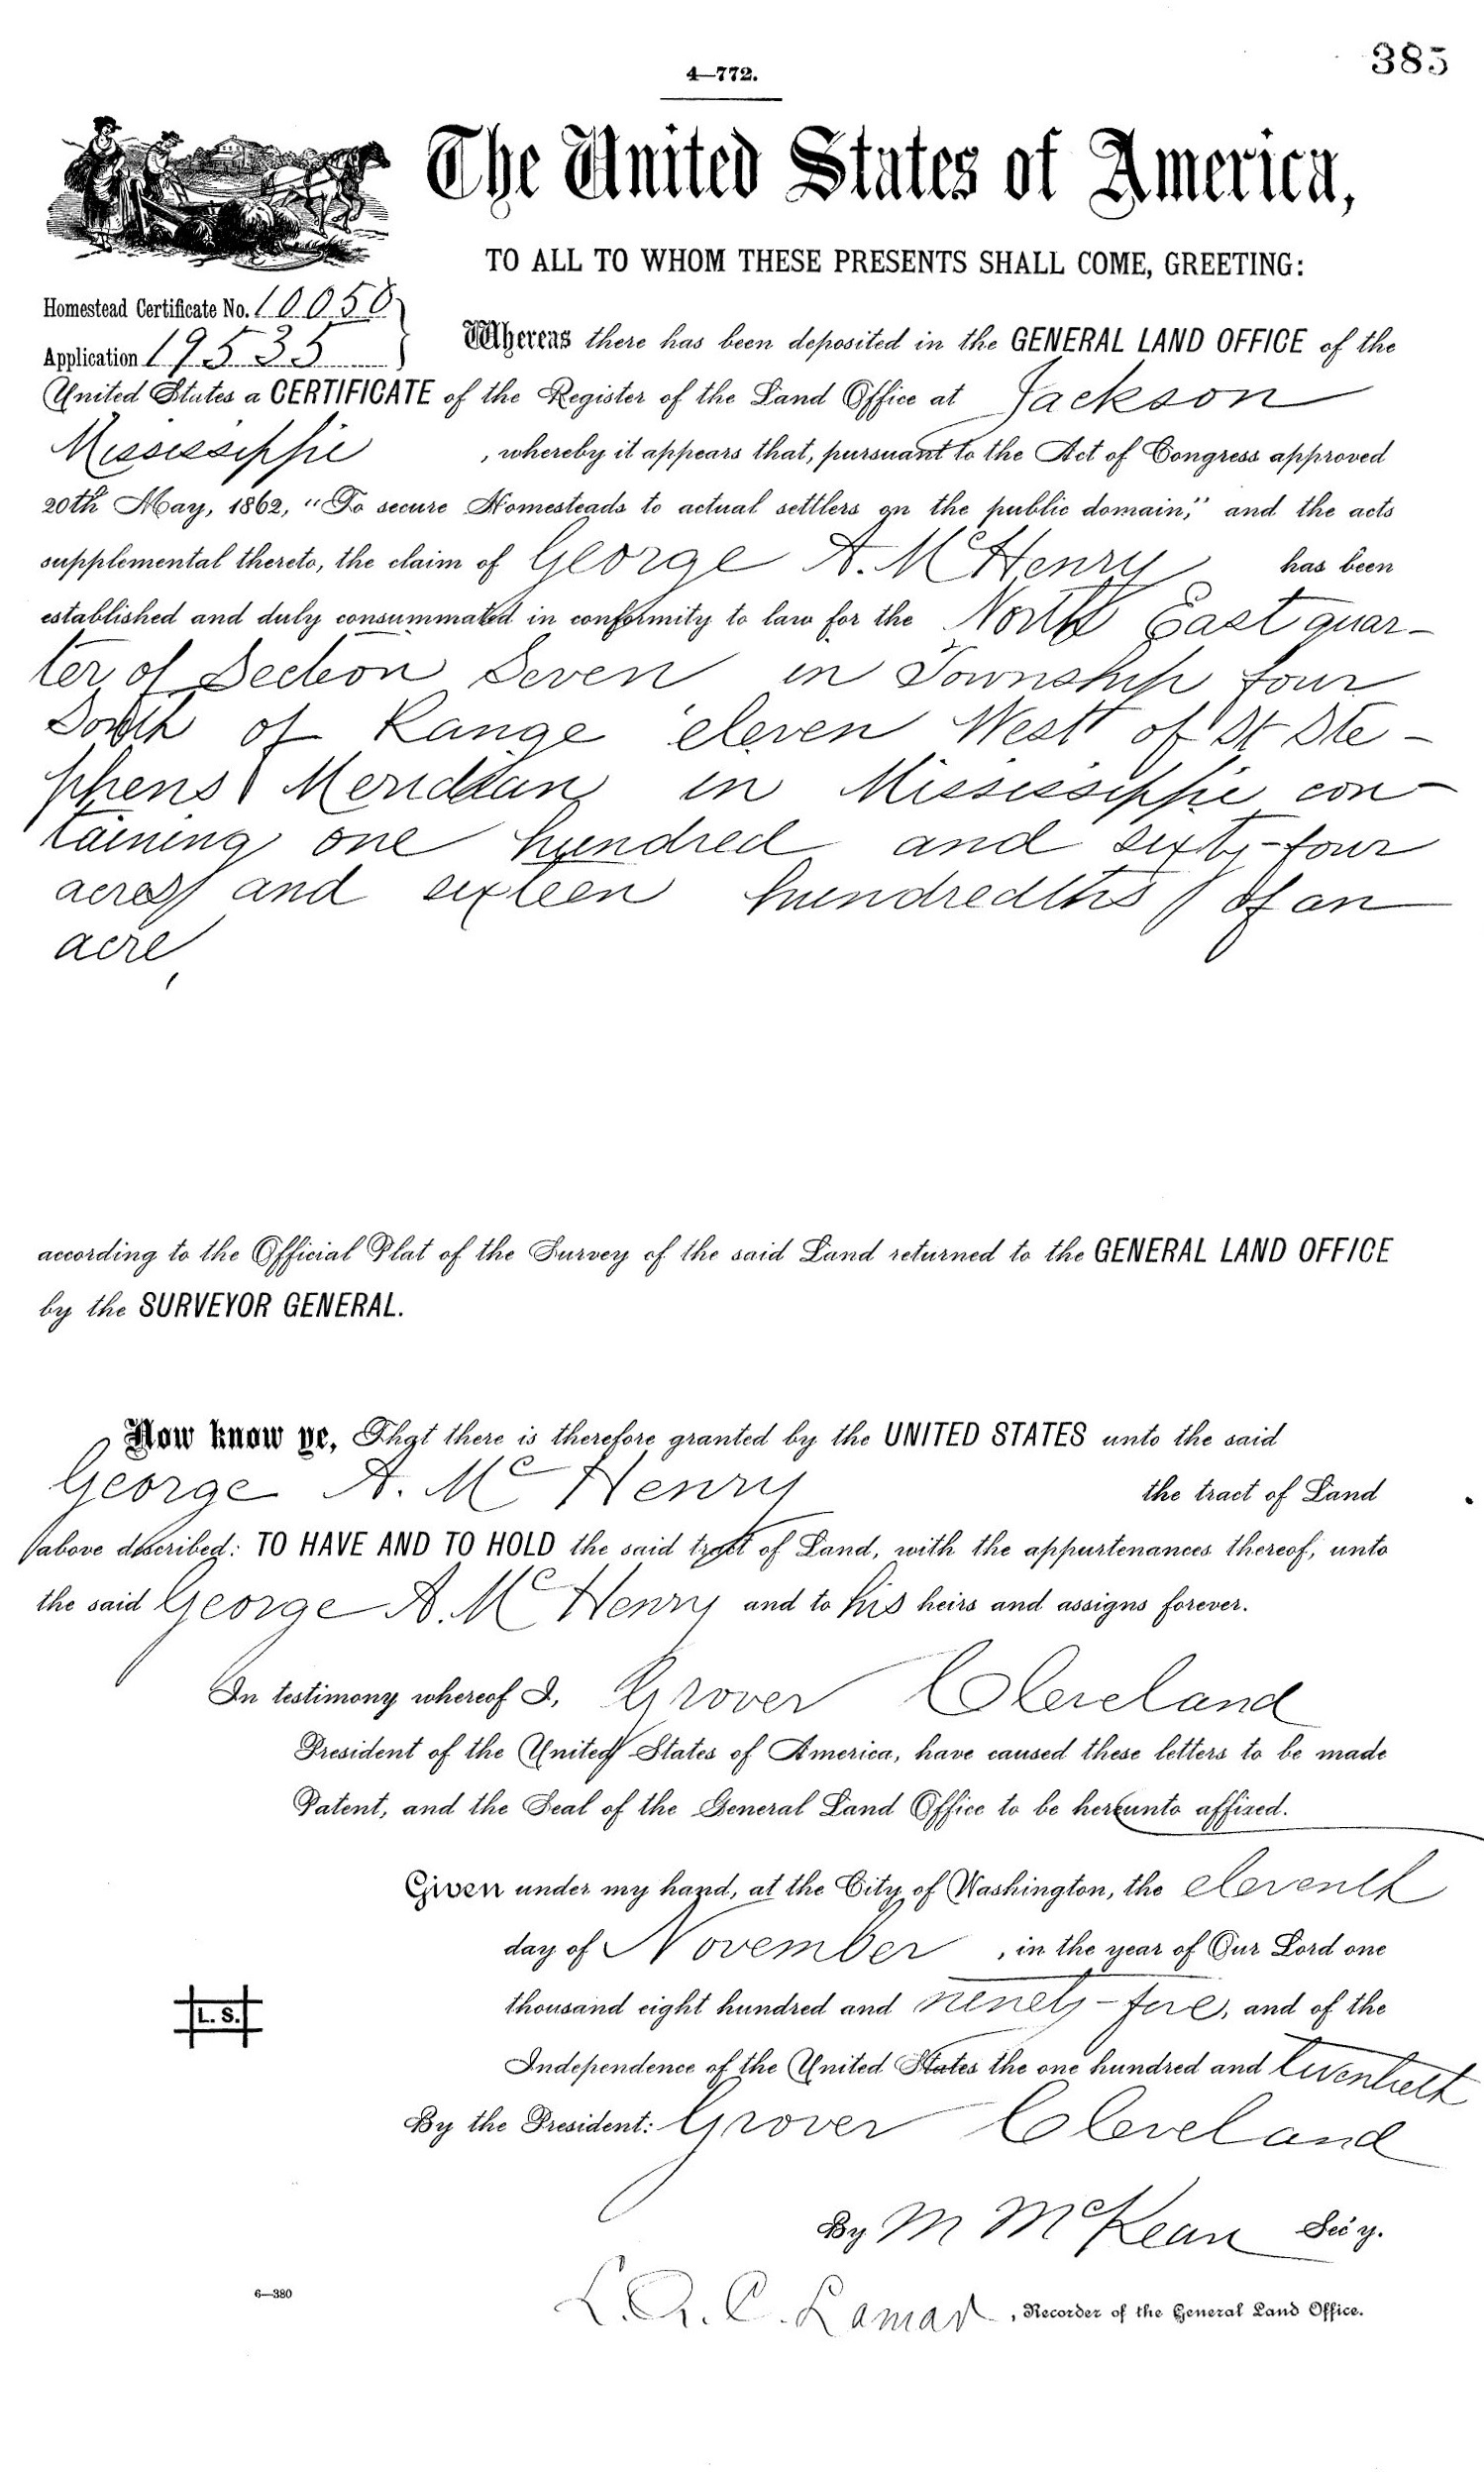 385
4—772.
The United States of America,
TO ALL TO WHOM THESE PRESENTS SHALL COME, GREETING:
Homestead Certificate No. 10050
Application 19535
Whereas there has been deposited in the GENERAL LAND OFFICE of the
United States a CERTIFICATE of the Register of the Land Office at Jackson
Mississippi, whereby it appears that, pursuant to the Act of Congress approved
20th May, 1862, "To secure Homesteads to actual settlers on the public domain," and the acts
supplemental thereto, the claim of George A. McHenry has been
established and duly consummated in conformity to law for the North East quar-
ter of Section Seven in Township four
South of Range eleven West of St Ste-
phens Meridian in Mississippi con-
taining one hundred and sixty-four
acres and sixteen hundredths of an
acre
according to the Official Plat of the Survey of the said Land returned to the GENERAL LAND OFFICE
by the SURVEYOR GENERAL.
Now know ye, That there is therefore granted by the UNITED STATES unto the said
George A. Mc Henry the tract of Land
above described: TO HAVE AND TO HOLD the said tract of Land, with the appurtenances thereof, unto
the said George A. Mc Henry and to his heirs and assigns forever.
In testimony whereof I, Grover Cleveland
President of the United States of America, have caused these letters to be made
Patent, and the Seal of the General Land Office to be hereunto affixed.
Given under my hand, at the City of Washington, the eleventh
day of November, in the year of Our Lord one
thousand eight hundred and ninety-five, and of the
Independence of the United States the one hundred and twentieth
L. S.
By the President: Grover Cleveland
By M McKean Sec'y.
6—380
L. Q. C. Lamar, Recorder of the General Land Office.